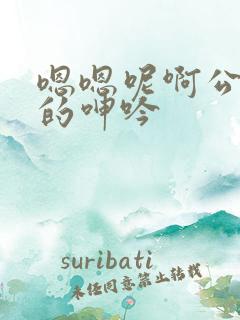 嗯嗯呢啊公
的呻吟
suribati
未经同意禁止转载